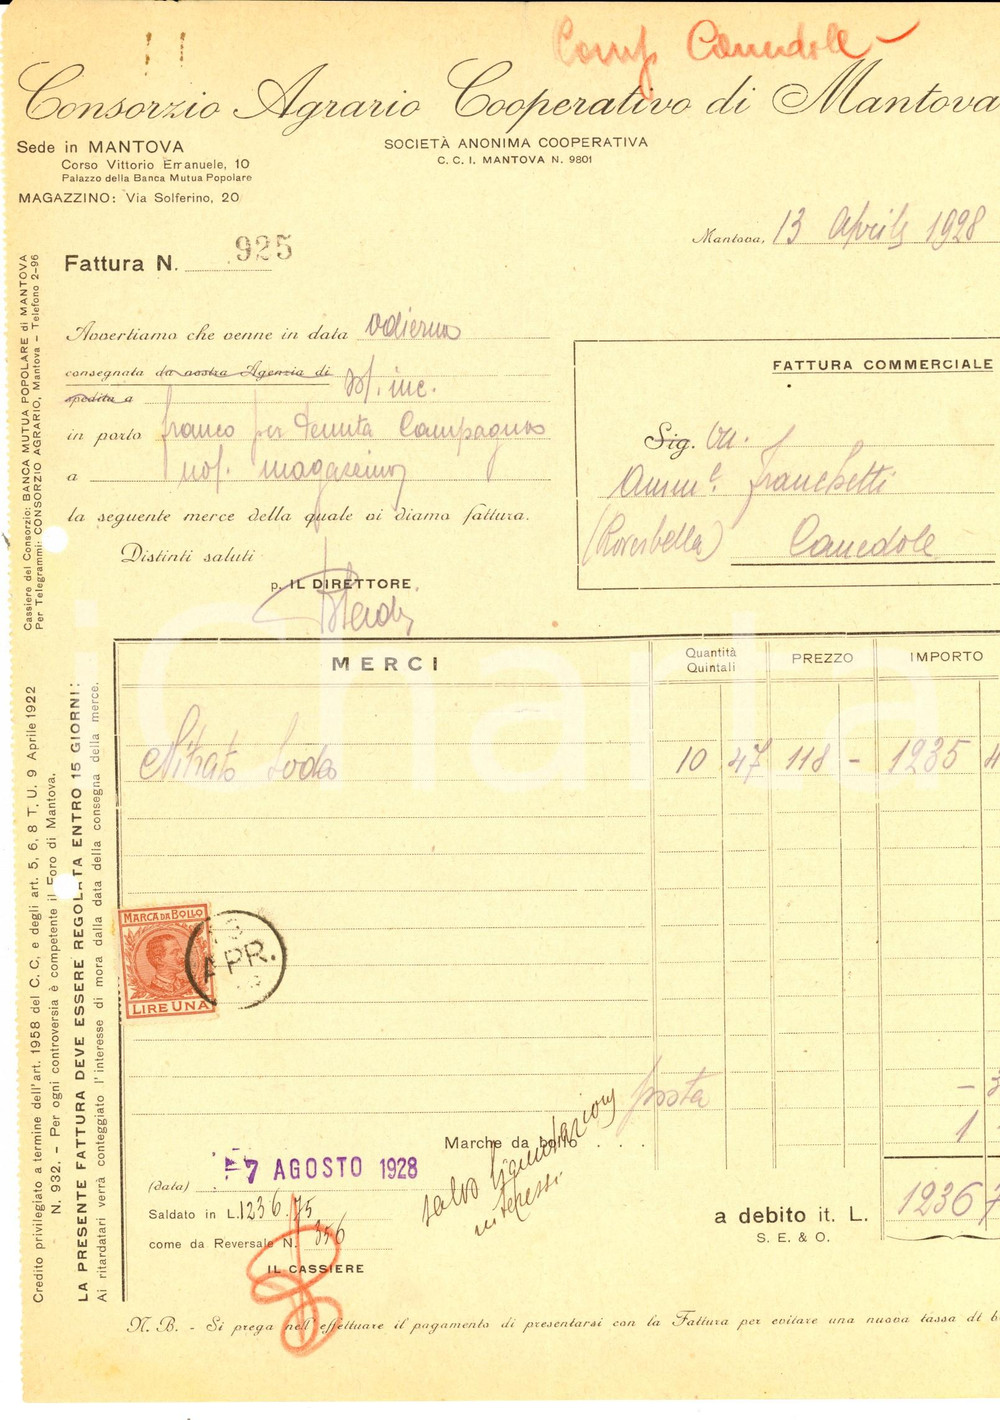 Comp Canedole
Consorzio Agrario Cooperativo di Mantova
Sede in MANTOVA
Corso Vittorio Emanuele, 10
Palazzo della Banca Mutua Popolare
MAGAZZINO: Via Solferino, 20
SOCIETÀ ANONIMA COOPERATIVA
C. C. I. MANTOVA N. 9801
Mantova, 13 Aprile 1928
Fattura N. 925
Avvertiamo che venne in data odierna
consegnata da nostra Agenzia di
spedita a M. inc.
in porto franco per Tenuta Campagnas
a nos. magazzino
la seguente merce della quale vi diamo fattura.
Distinti saluti
p. IL DIRETTORE
FATTURA COMMERCIALE
Sig. On.
Amm.e Franchetti
(Roverbella) Canedole
MERCI
Quantità
Quintali
PREZZO
IMPORTO
Nitrato Soda 10 47 118 - 1235 4
MARCA DA BOLLO
LIRE UNA
APR.
posta - 3
Marche da bollo . . . 1
7 AGOSTO 1928
(data)
Saldato in L. 1236.75
come da Reversale N. 356
IL CASSIERE
salvo liquidazione
interessi
a debito it. L. 1236 7
S. E. & O.
N. B. - Si prega nell'effettuare il pagamento di presentarsi con la Fattura per evitare una nuova tassa di b
Cassiere del Consorzio: BANCA MUTUA POPOLARE di MANTOVA
Per Telegrammi: CONSORZIO AGRARIO, Mantova - Telefono 2-96
Credito privilegiato a termine dell'art. 1958 del C. C, e degli art. 5, 6, 8 T. U. 9 Aprile 1922
N. 932. - Per ogni controversia è competente il Foro di Mantova.
LA PRESENTE FATTURA DEVE ESSERE REGOLATA ENTRO 15 GIORNI:
Ai ritardatari verrà conteggiato l'interesse di mora dalla data della consegna della merce.
iCharta